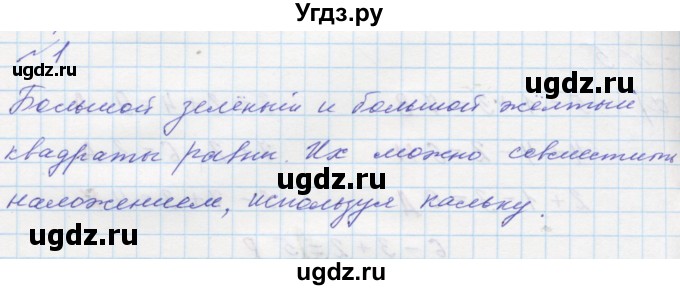 Угдз.ру
№1
ugdz.ru
ugdz.ru
Большой зелёный и большой жёлтый
ugdz.ru
ugdz.ru
квадраты равны. Их можно совместить
наложением, используя кальку.
ugdz.ru
ugdz.ru
ugdz.ru